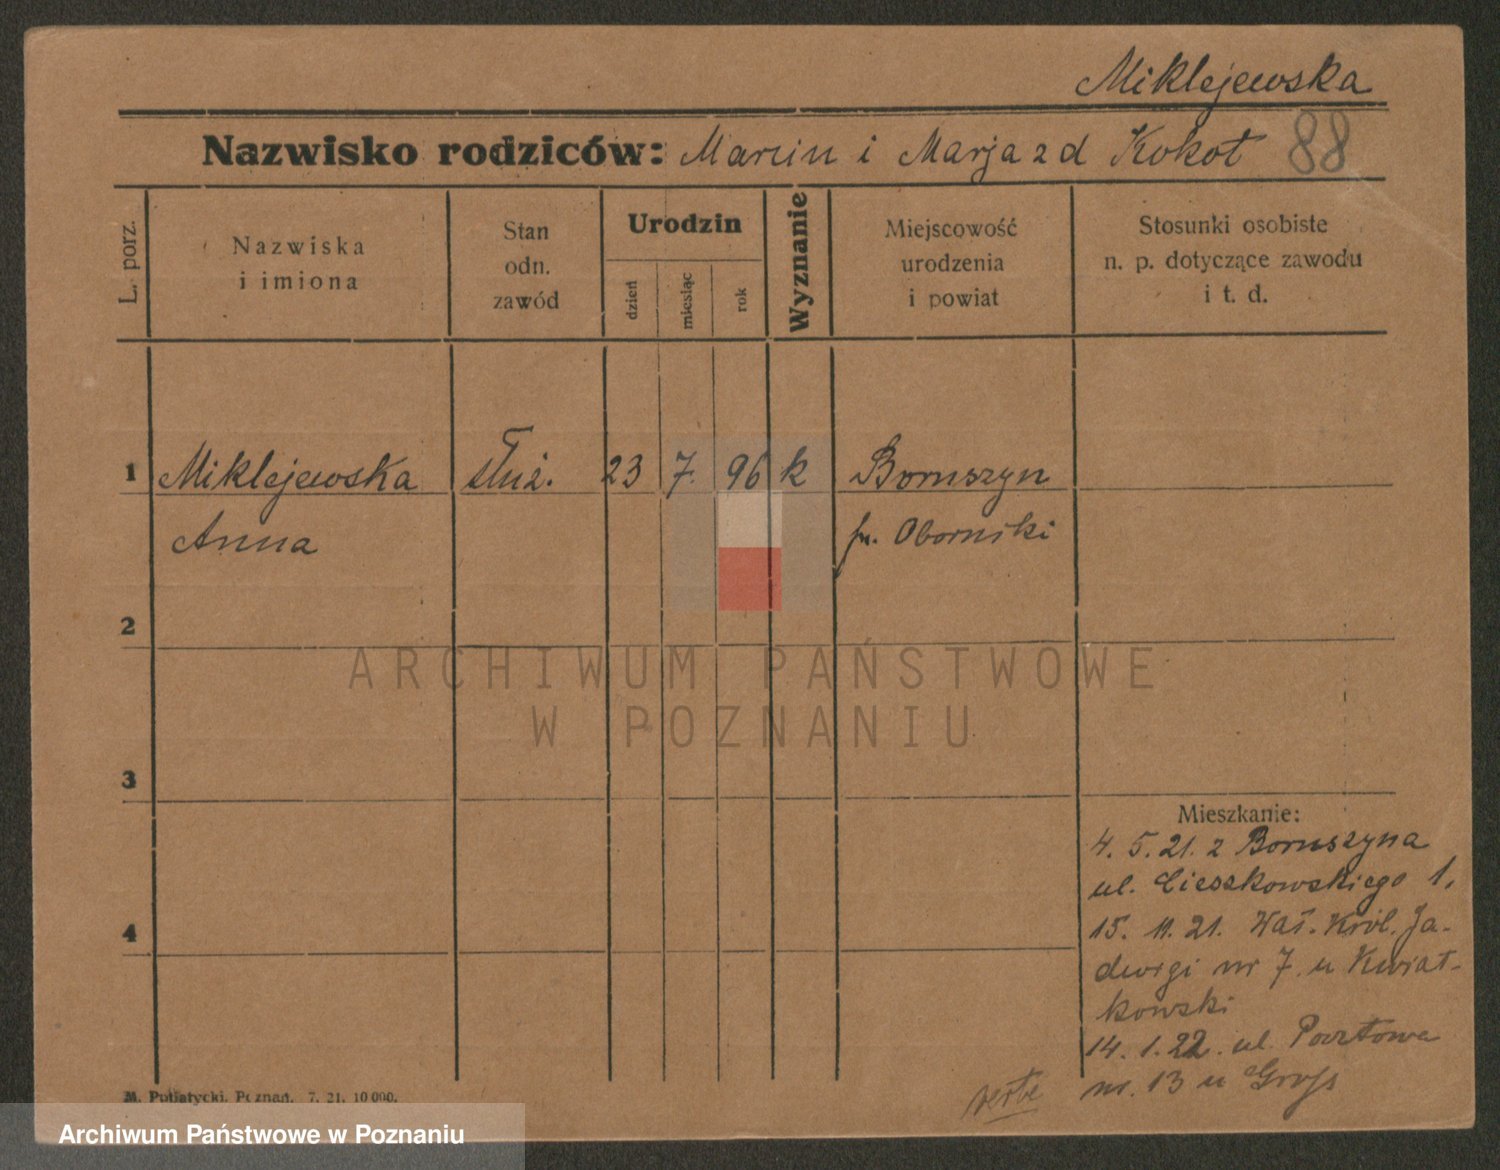 Miklejewska
Nazwisko rodziców: Marcin i Marja z d Kokot 88
L. porz.
Nazwiska
i imiona
Stan
odn.
zawód
Urodzin
dzień
miesiąc
rok
Wyznanie
Miejscowość
urodzenia
i powiat
Stosunki osobiste
n. p. dotyczące zawodu
i t. d.
1 Miklejewska służ. 23 7. 96 k Boruszyn
Anna pw. Oborniki
2
ARCHIWUM PAŃSTWOWE
W POZNANIU
3
Mieszkanie:
4. 5. 21. z Boruszyna
ul. Cieszkowskiego 1.
4
15. 11. 21. Wał. Król. Ja-
dwigi nr 7. u Kwiat-
kowski
14. 1. 22. ul. Pocztowa
nr. 13 u Groß
verte
M. Putiatycki, Poznań. 7. 21. 10 000.
Archiwum Państwowe w Poznaniu